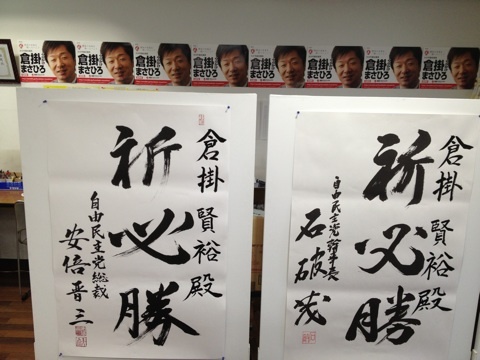 倉掛
まさひろ
倉掛
まさひろ
倉掛
まさひろ
倉掛
まさひろ
倉掛
まさひろ
倉掛
まさひろ
倉掛
まさひろ
倉掛
まさひろ
倉掛 賢裕 殿
祈必勝
自由民主党総裁
安倍晋三
倉掛 賢裕 殿
祈必勝
自由民主党幹事長
石破茂